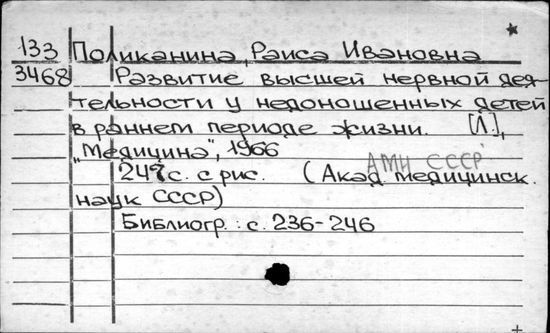 133 Поликанина, Раиса Ивановна
3468 Развитие высшей нервной дея-
тельности у недоношенных детей
в раннем периоде жизни. [Л.],
"Медицина", 1966
АМН СССР
247 с. с рис. (Акад. медицинск.
наук СССР)
Библиогр.: с. 236-246